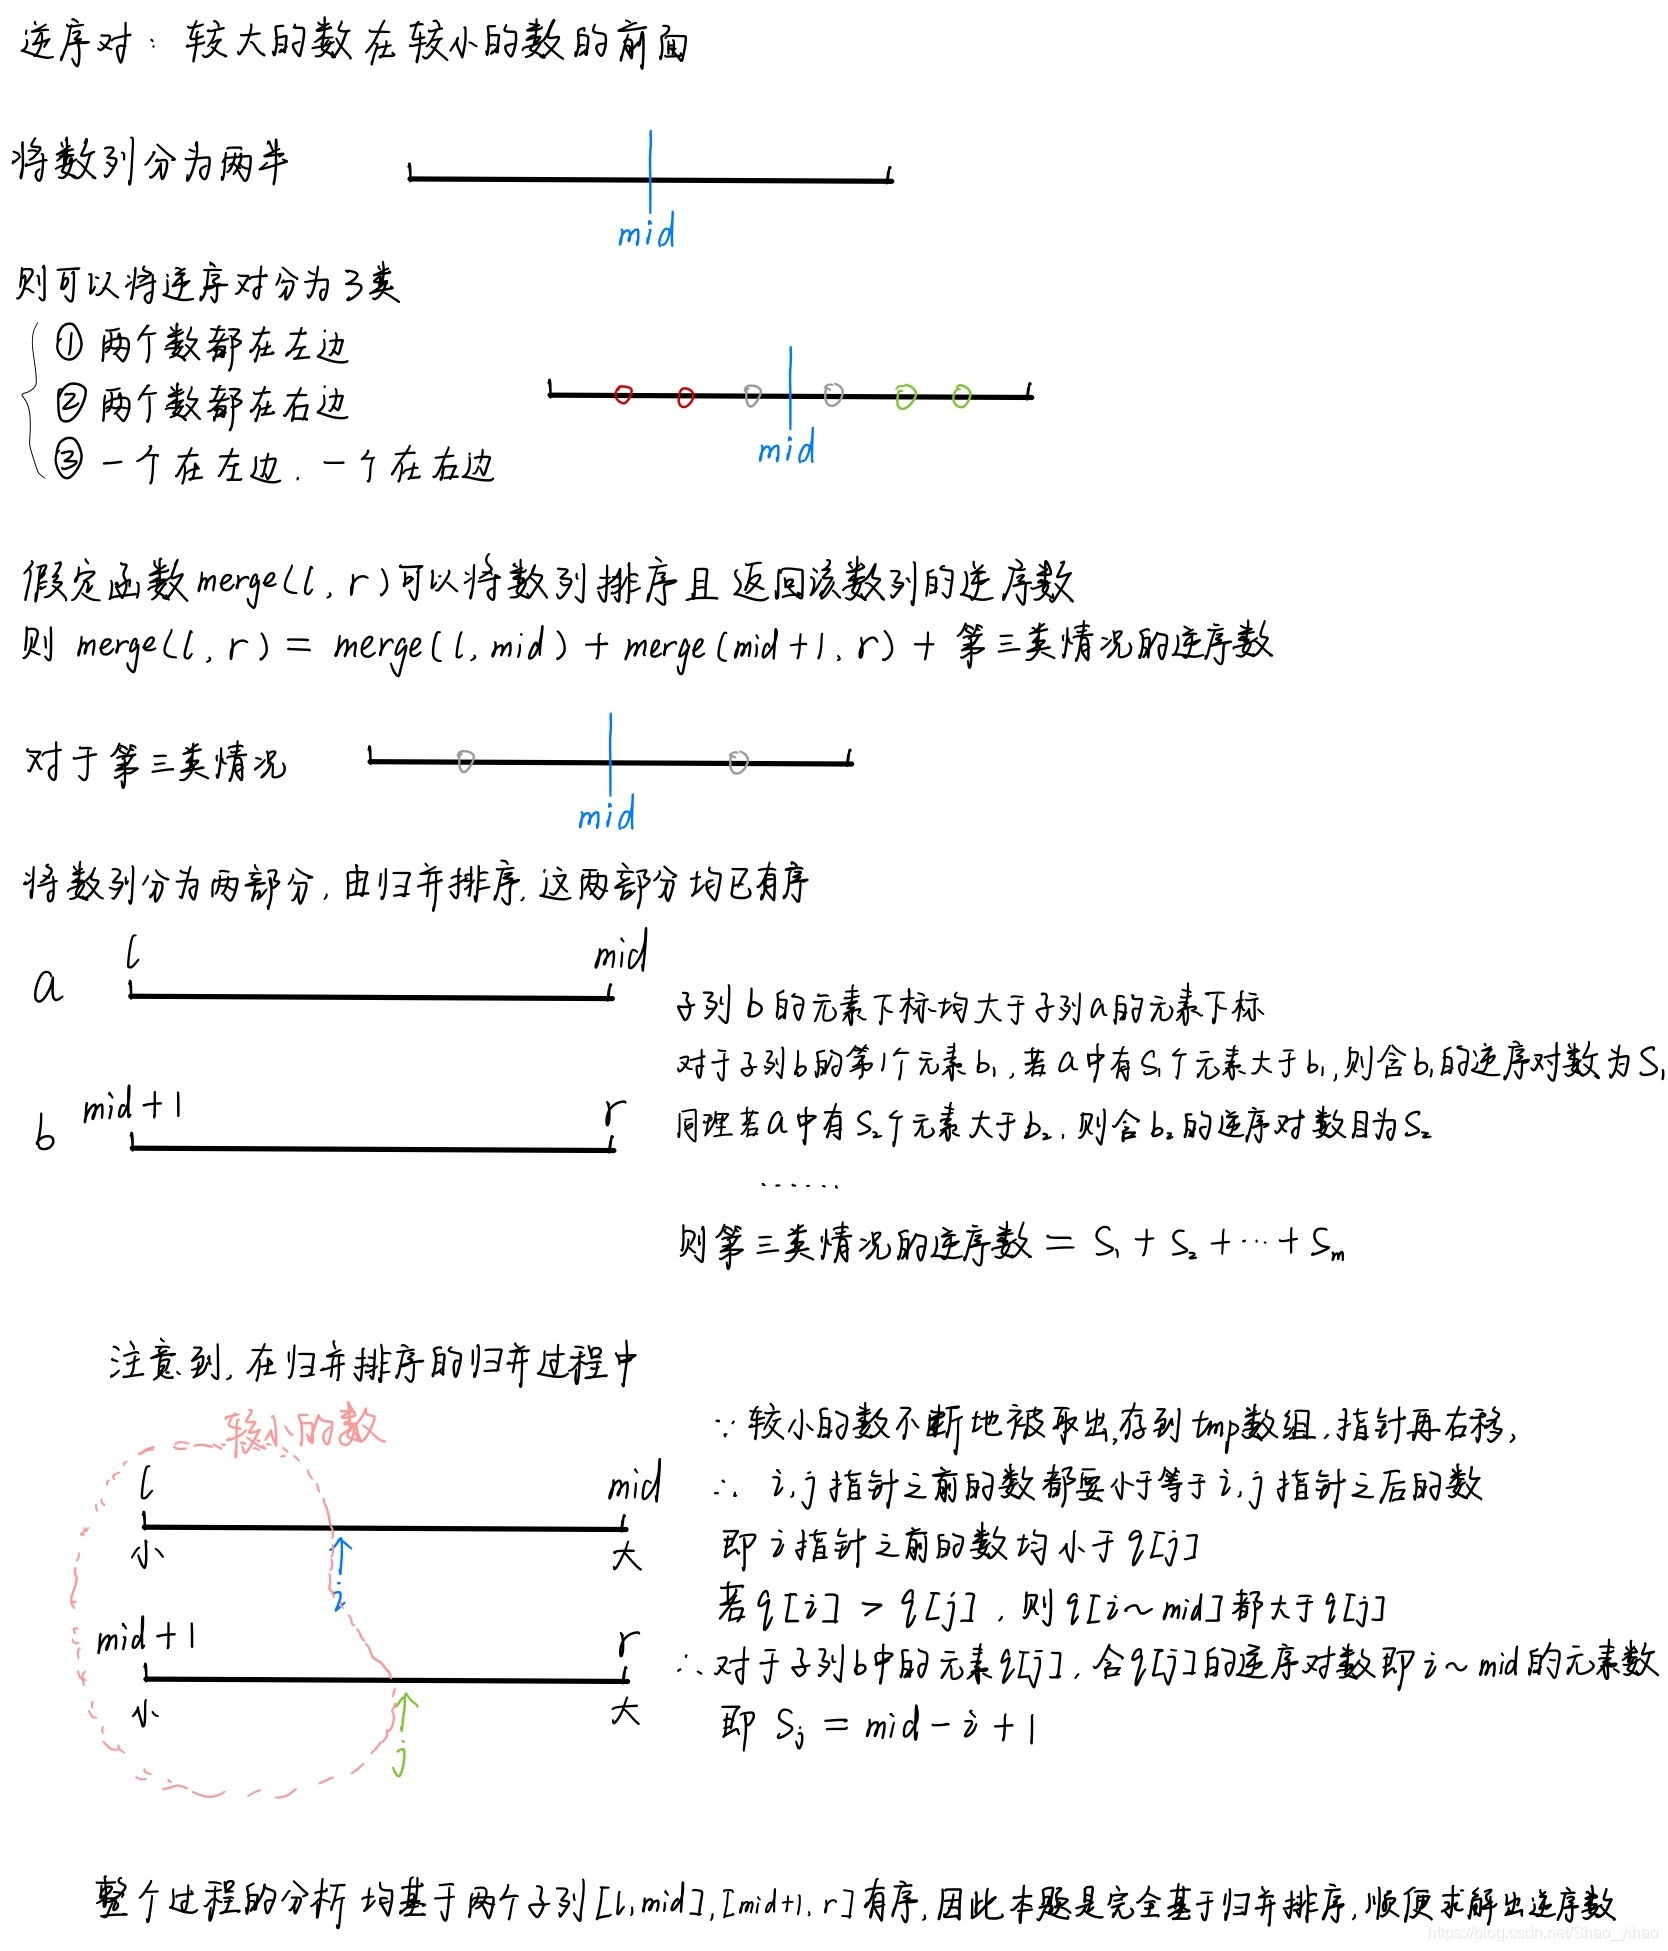 逆序对：较大的数在较小的数的前面
将数列分为两半
mid
则可以将逆序对分为3类
① 两个数都在左边
② 两个数都在右边
③ 一个在左边，一个在右边
mid
假定函数merge(l, r)可以将数列排序且返回该数列的逆序数
则 merge(l, r) = merge(l, mid) + merge(mid+1, r) + 第三类情况的逆序数
对于第三类情况
mid
将数列分为两部分，由归并排序，这两部分均已有序
l mid
a
mid+1 r
b
子列b的元素下标均大于子列a的元素下标
对于子列b的第1个元素b₁，若a中有S₁个元素大于b₁，则含b₁的逆序对数为S₁
同理若a中有S₂个元素大于b₂，则含b₂的逆序对数目为S₂
......
则第三类情况的逆序数 = S₁ + S₂ + ··· + Sₘ
注意到，在归并排序的归并过程中
较小的数
l mid
小 大
i
mid+1 r
小 大
j
∵ 较小的数不断地被取出，存到tmp数组，指针再右移，
∴ i, j 指针之前的数都要小于等于i, j 指针之后的数
即 i指针之前的数均小于q[j]
若q[i] > q[j]，则q[i~mid]都大于q[j]
∴ 对于子列b中的元素q[j]，含q[j]的逆序对数即i~mid的元素数
即 Sⱼ = mid-i+1
整个过程的分析均基于两个子列[l,mid],[mid+1, r]有序，因此本题是完全基于归并排序，顺便求解出逆序数
https://blog.csdn.net/Shao_yihao